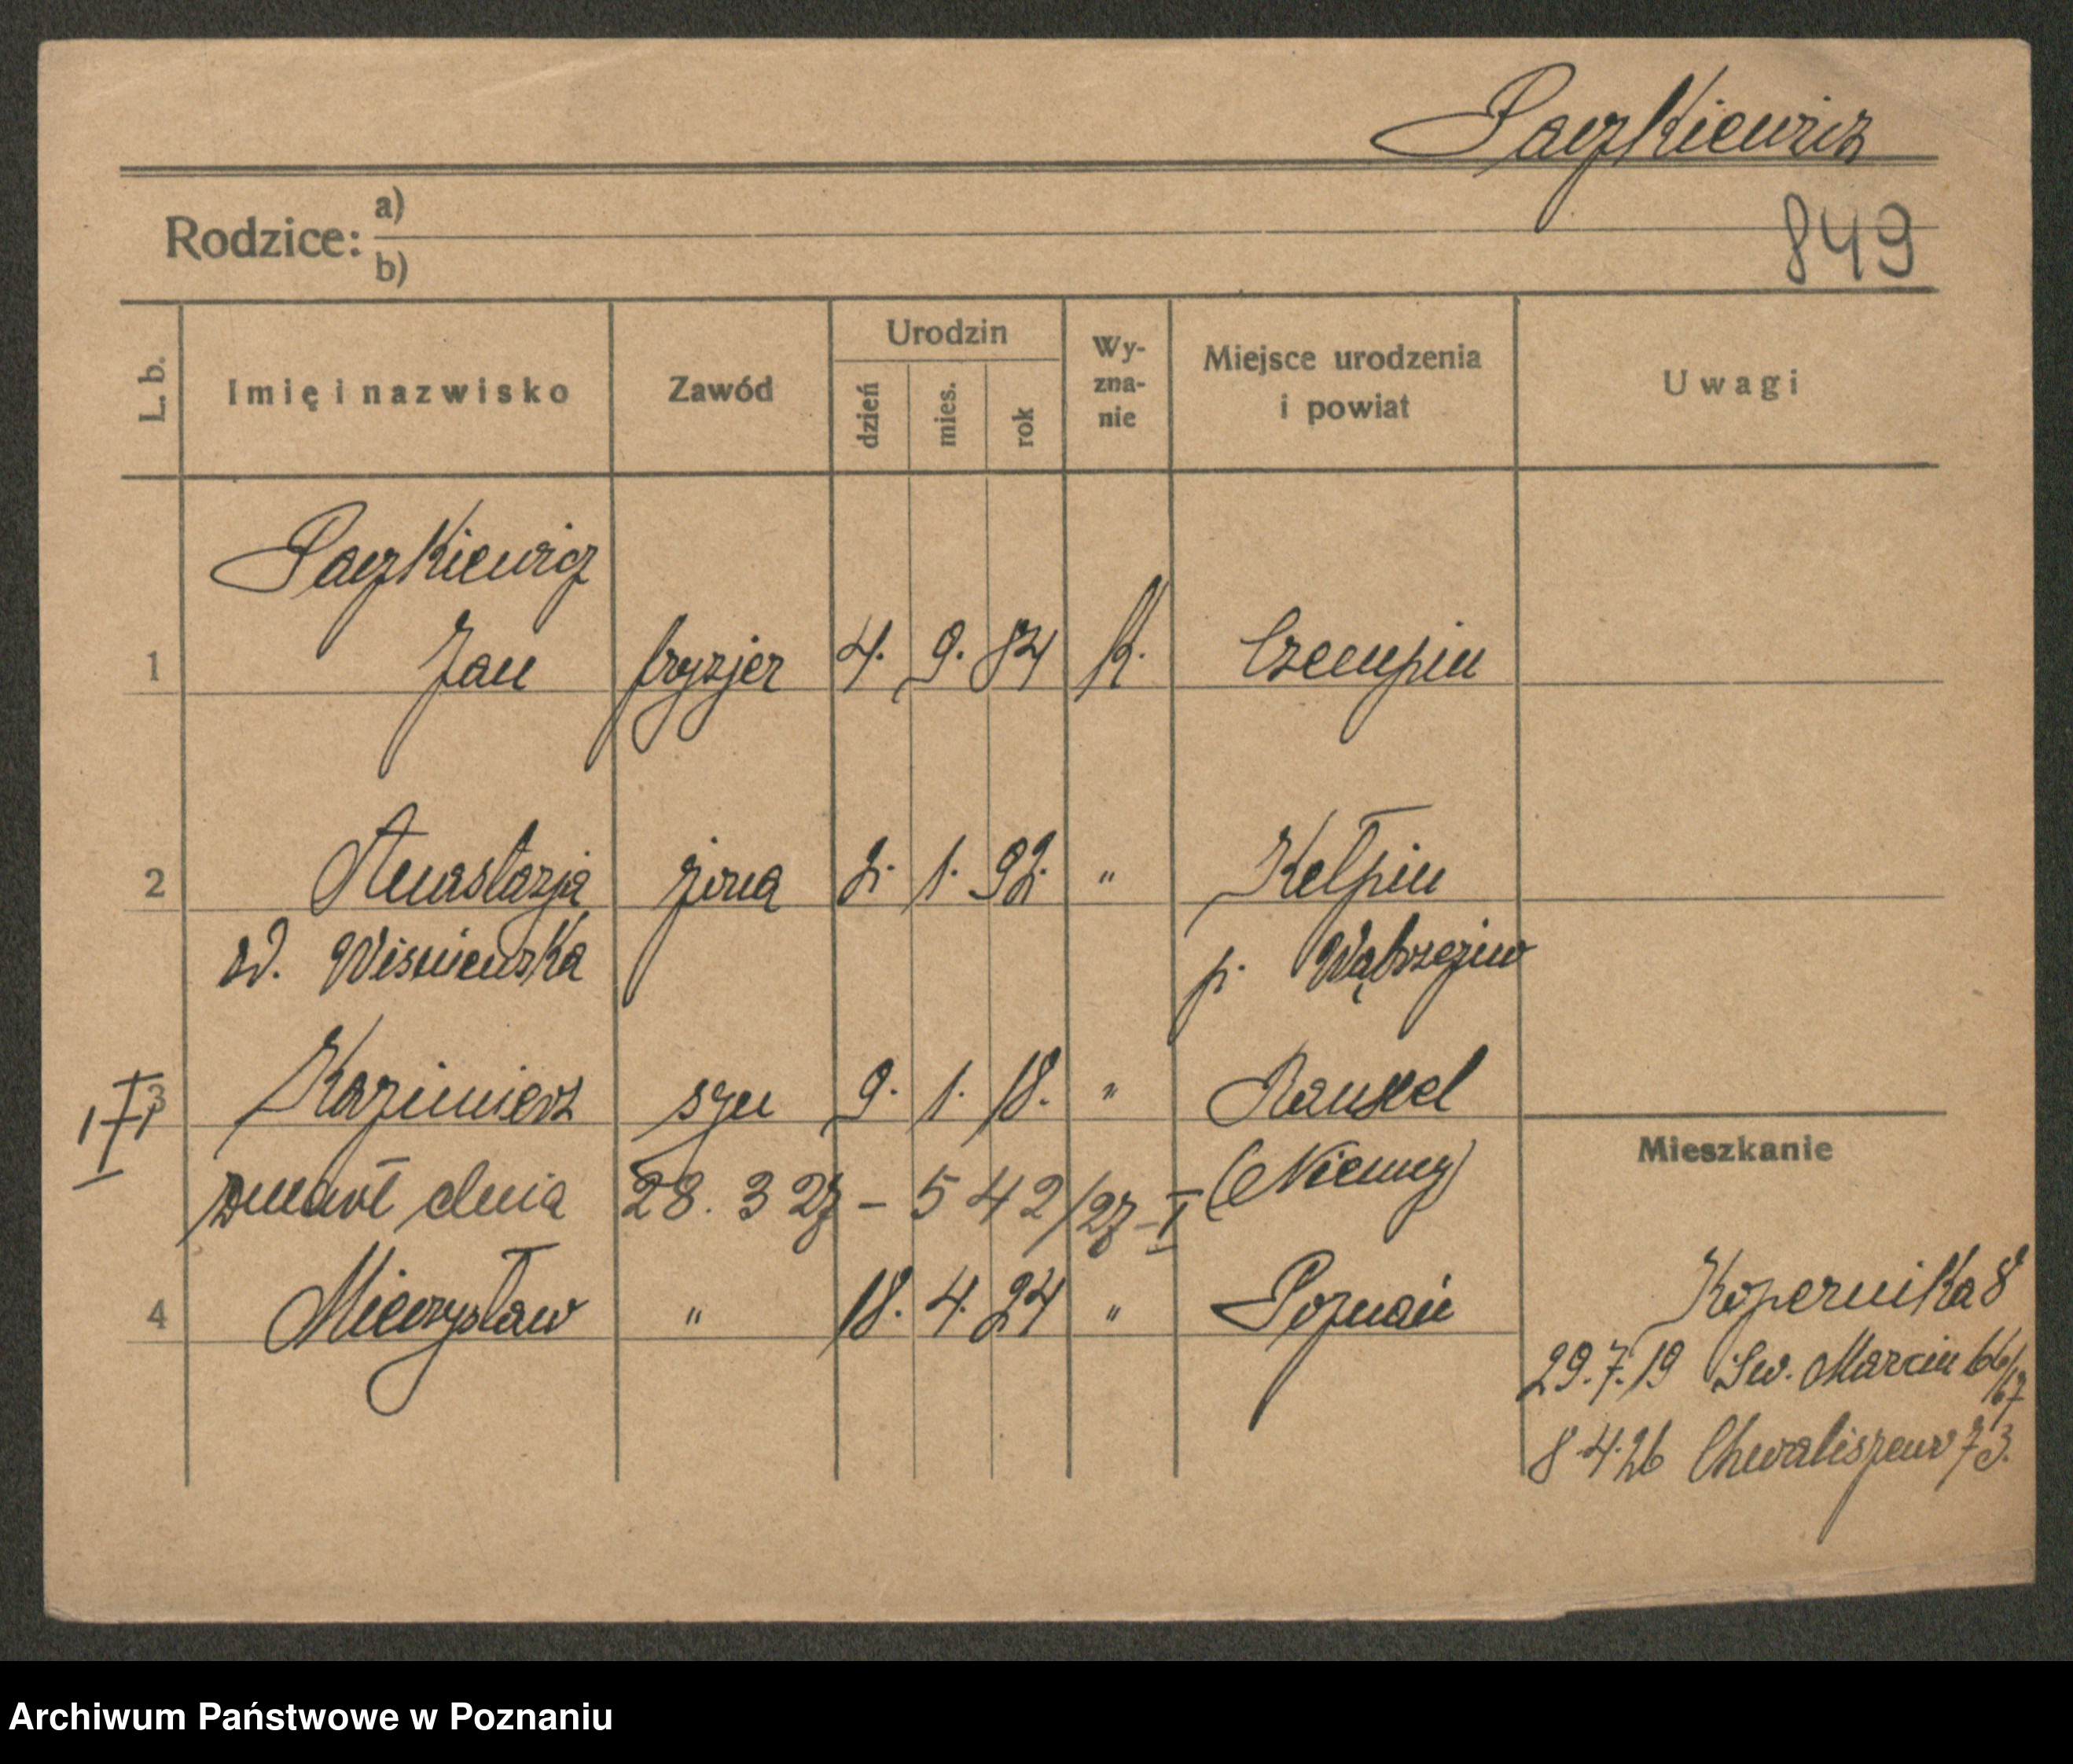 Paczkiewicz
Rodzice: a)
b)
849
L. b. Imię i nazwisko Zawód Urodzin dzień mies. rok Wy-zna-nie Miejsce urodzenia i powiat Uwagi
Paczkiewicz
1 Jan fryzjer 4. 9. 84 K. Czempin
2 Anastazja żona 2. 1. 92. " Kełpin
W. Wisniewska p. Wąbrzeźno
3 Kazimierz syn 9. 1. 18. "
(Niemcy)
Mieszkanie
zmarł dnia 28. 3 27 – 542/27 – I
4 Mieczysław " 18. 4. 24 " Poznań
Kopernika 8
29.7.19 Św. Marcin 66/67
8 4.26 Chwaliszewo 73.
Archiwum Państwowe w Poznaniu